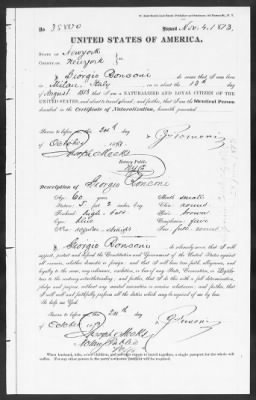 No 35880 Issued Nov. 4, 1873.
UNITED STATES OF AMERICA.
STATE OF Newyork
COUNTY OF Newyork
I, Giorgio Ronconi do swear that I was born
in Milan, Italy on or about the day
of August 1813 that I am a NATURALIZED AND LOYAL CITIZEN OF THE
UNITED STATES, and about to travel abroad; and further, that I am the Identical Person
described in the Certificate of Naturalization, herewith presented.
Sworn to before me this 24th day
of October 1873
Joseph Meeks
Notary Public
NYC
G Ronconi
Description of Giorgio Ronconi
Age: 60 years
Stature: 5 feet 2 inches Eng.
Forehead: high
Eyes: blue
Nose: regular
Mouth: small
Chin: round
Hair: brown
Complexion: fair
Face: full round
I, Giorgio Ronconi do solemnly swear that I will
support, protect and defend the Constitution and Government of the United States against
all enemies, whether domestic or foreign; and that I will bear true faith, allegiance, and
loyalty to the same, any ordinance, resolution, or law of any State, Convention, or Legislature
to the contrary notwithstanding; and further, that I do this with a full determination,
pledge and purpose, without any mental reservation or evasion whatsoever; and further, that
I will well and faithfully perform all the duties which may be required of me by law.
So help me God.
Sworn to before me this 24th day
of October 1873
Joseph Meeks
Notary Public
NYC
G Ronconi
When husband, wife, minor children, and servants expect to travel together, a single passport for the whole will
suffice. For any other person in the party a separate passport will be required.